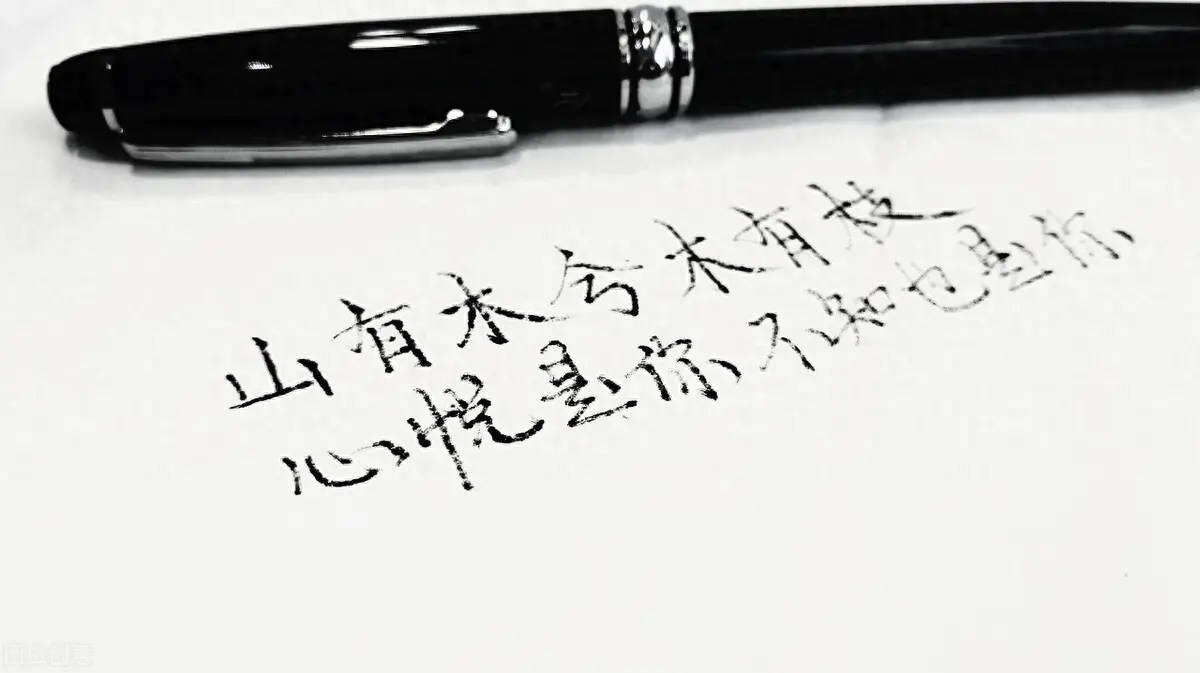 山有木兮木有枝
心悦是你不知也是你